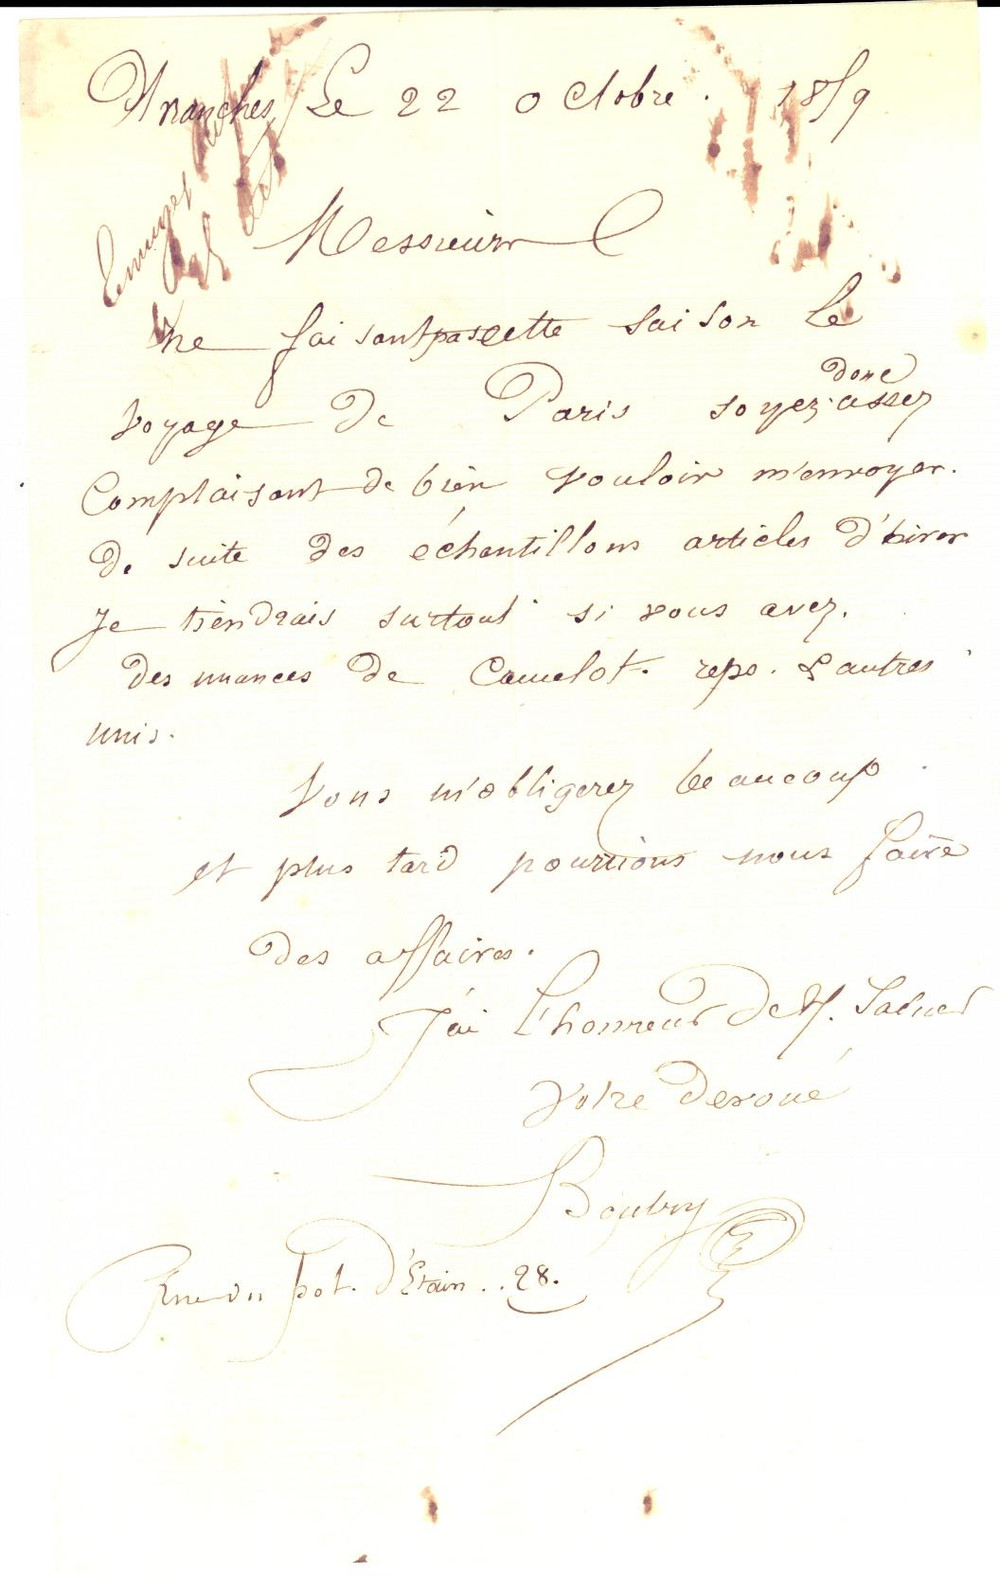 Avranches Le 22 Octobre. 1859
Messieurs
ne faisant pas cette saison le
voyage de Paris soyez donc assez
Complaisant de bien vouloir m'envoyer.
de suite des échantillons articles d'hiver
Je tiendrais surtout si vous avez.
des nuances de Camelot. reps. & autres
unis.
Vous m'obligerez beaucoup
et plus tard pourrions nous faire
des affaires.
J'ai l'honneur de V. Saluer
Votre devoué
Boutry
Rue du pot. d'Etain. 28.